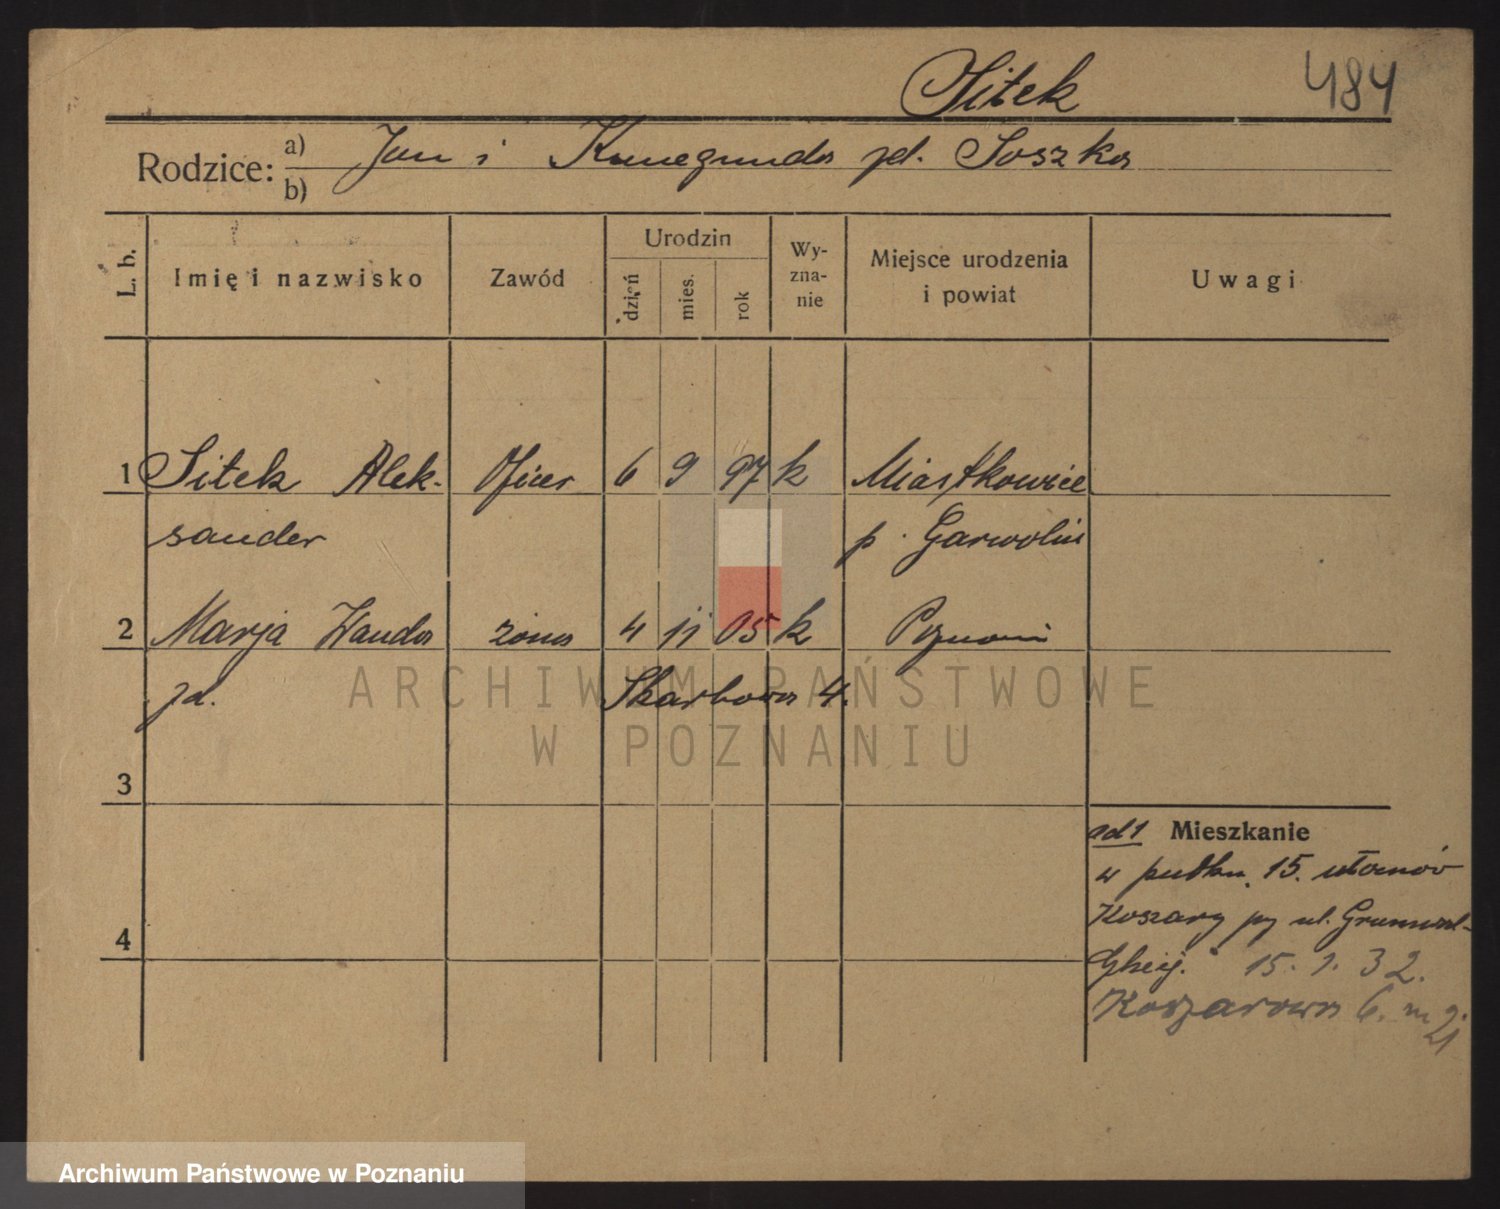 Sitek 484
Rodzice: a) Jan i Kunegunda zd. Soszka
b)
L. b. Imię i nazwisko Zawód Urodzin dzień mies. rok Wyznanie Miejsce urodzenia i powiat Uwagi
1 Sitek Alek- Oficer 6 9 97 k Miastkowice
sander p. Garwolin
2 Marja Wanda żona 4 11 05 k Poznań
zd. Skarbowa 4.
ARCHIWUM PAŃSTWOWE
W POZNANIU
3
ad 1 Mieszkanie
w pułku 15. ułanów
4 Koszary py ul. Grunwal-
dzkiej. 15. 1. 32.
Koszarowa 6. m 21
Archiwum Państwowe w Poznaniu